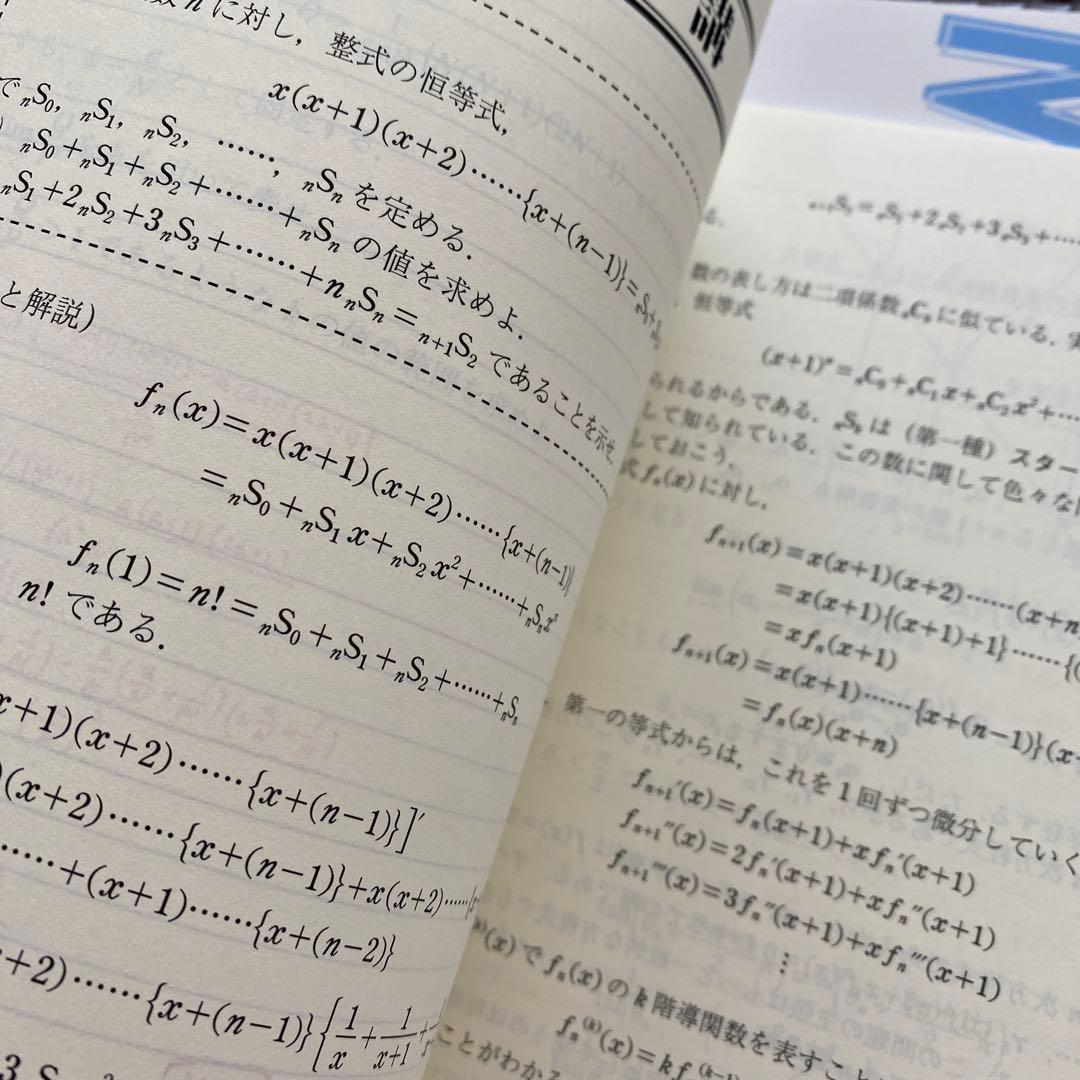 講
に対し,整式の恒等式,
x(x+1)(x+2)……{x+(n-1)}=
で nS₀, nS₁, nS₂, ……, nSₙ を定める.
nS₀+nS₁+nS₂+……+nSₙ の値を求めよ.
nS₁+2nS₂+3nS₃+……+n nSₙ=n+1S₂ であることを示せ.
と解説)
fₙ(x)=x(x+1)(x+2)……{x+(n-1)}
=nS₀+nS₁x+nS₂x²+……+nSₙxⁿ
fₙ(1)=n!=nS₀+nS₁+nS₂+……+nSₙ
n! である.
x+1)(x+2)……{x+(n-1)}]′
)(x+2)……{x+(n-1)}+x(x+2)……
……+(x+1)……{x+(n-2)}
+2)……{x+(n-1)}{1/x+1/(x+1)+
n+1S₂=nS₁+2nS₂+3nS₃+……
る.
数の表し方は二項係数 nCₖ に似ている.
恒等式
(x+1)ⁿ=nC₀+nC₁x+nC₂x²+……
られるからである. nSₖ は (第一種) スター
して知られている.この数に関して色々な
しておこう.
式 fₙ(x) に対し,
fₙ₊₁(x)=x(x+1)(x+2)……(x+n
=x(x+1){(x+1)+1}……{(
=xfₙ(x+1)
fₙ₊₁(x)=x(x+1)……{x+(n-1)}(x+
=fₙ(x)(x+n)
第一の等式からは,これを1回ずつ微分していく
fₙ₊₁′(x)=fₙ(x+1)+xfₙ′(x+1)
fₙ₊₁″(x)=2fₙ′(x+1)+xfₙ″(x+1)
fₙ₊₁‴(x)=3fₙ″(x+1)+xfₙ‴(x+1)
⋮
(x) で fₙ(x) の k 階導関数を表すこと
fₙ⁽ᵏ⁾(x)=kf
ことがわかる